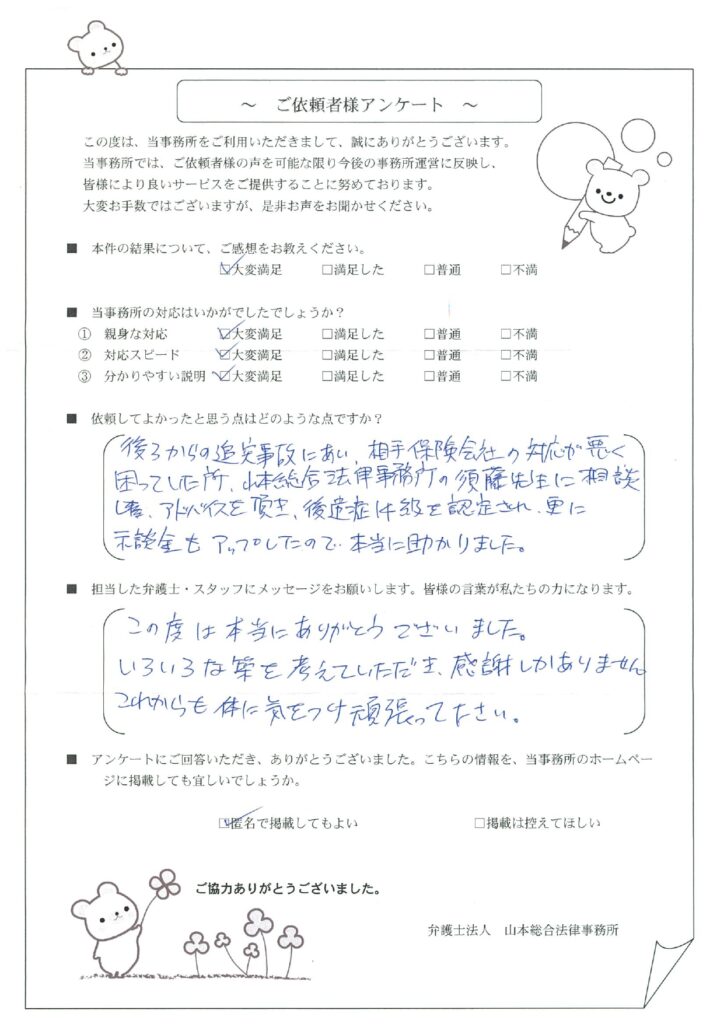 ～ ご依頼者様アンケート ～
この度は、当事務所をご利用いただきまして、誠にありがとうございます。
当事務所では、ご依頼者様の声を可能な限り今後の事務所運営に反映し、
皆様により良いサービスをご提供することに努めております。
大変お手数ではございますが、是非お声をお聞かせください。
■ 本件の結果について、ご感想をお教えください。
☑大変満足 □満足した □普通 □不満
■ 当事務所の対応はいかがでしたでしょうか？
① 親身な対応 ☑大変満足 □満足した □普通 □不満
② 対応スピード ☑大変満足 □満足した □普通 □不満
③ 分かりやすい説明 ☑大変満足 □満足した □普通 □不満
■ 依頼してよかったと思う点はどのような点ですか？
後ろからの追突事故にあい、相手保険会社の対応が悪く
困っていた所、山本総合法律事務所の須藤先生に相談
し、アドバイスを頂き、後遺症14級を認定され、更に
示談金もアップしたので、本当に助かりました。
■ 担当した弁護士・スタッフにメッセージをお願いします。皆様の言葉が私たちの力になります。
この度は本当にありがとうございました。
いろいろな策を考えていただき、感謝しかありません
これからも体に気をつけ頑張って下さい。
■ アンケートにご回答いただき、ありがとうございました。こちらの情報を、当事務所のホームペー
ジに掲載しても宜しいでしょうか。
☑匿名で掲載してもよい □掲載は控えてほしい
ご協力ありがとうございました。
弁護士法人 山本総合法律事務所